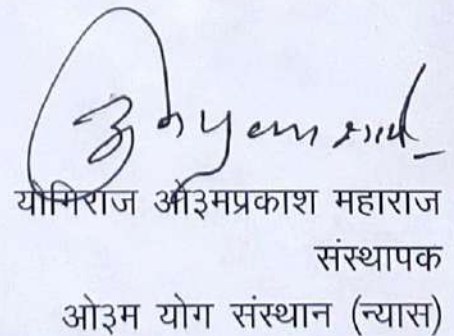 योगिराज ओ३मप्रकाश महाराज
संस्थापक
ओ३म योग संस्थान (न्यास)